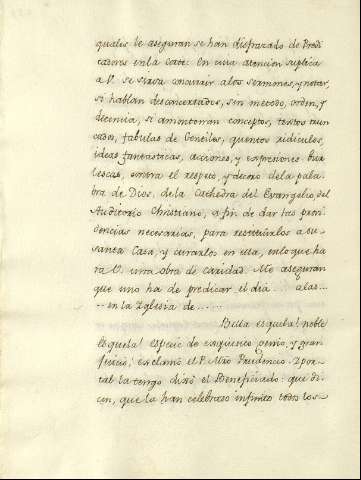 quales le aseguran se han disfrazado de Predi
cadores en la Corte: En cuia atencion suplica
a V. se sirva concurrir a los sermones, y notar,
si hablan desconcertados, sin metodo, orden, y
decencia, si amontonan conceptos, textos trun
cados, fabulas de Gentiles, quentos ridiculos,
ideas fantasticas, acciones, y expresiones bur
lescas, contra el respeto, y decoro de la pala
bra de Dios, de la Cathedra del Evangelio, del
Auditorio Christiano, a fin de dar las provi
dencias necesarias, para restituirlos a su
santa Casa, y curarlos en ella, en lo que ha
ra V. una obra de caridad. Me aseguran
que uno ha de predicar el dia ... a las ...
... en la Iglesia de ......
Bella esquela! noble
esquela! especie de exquisito genio, y gran
juicio! exclamó el P. Mro Prudencio. Y por
tal la tengo dixo el Beneficiado: que di
cen, que la han celebrado infinito todos los